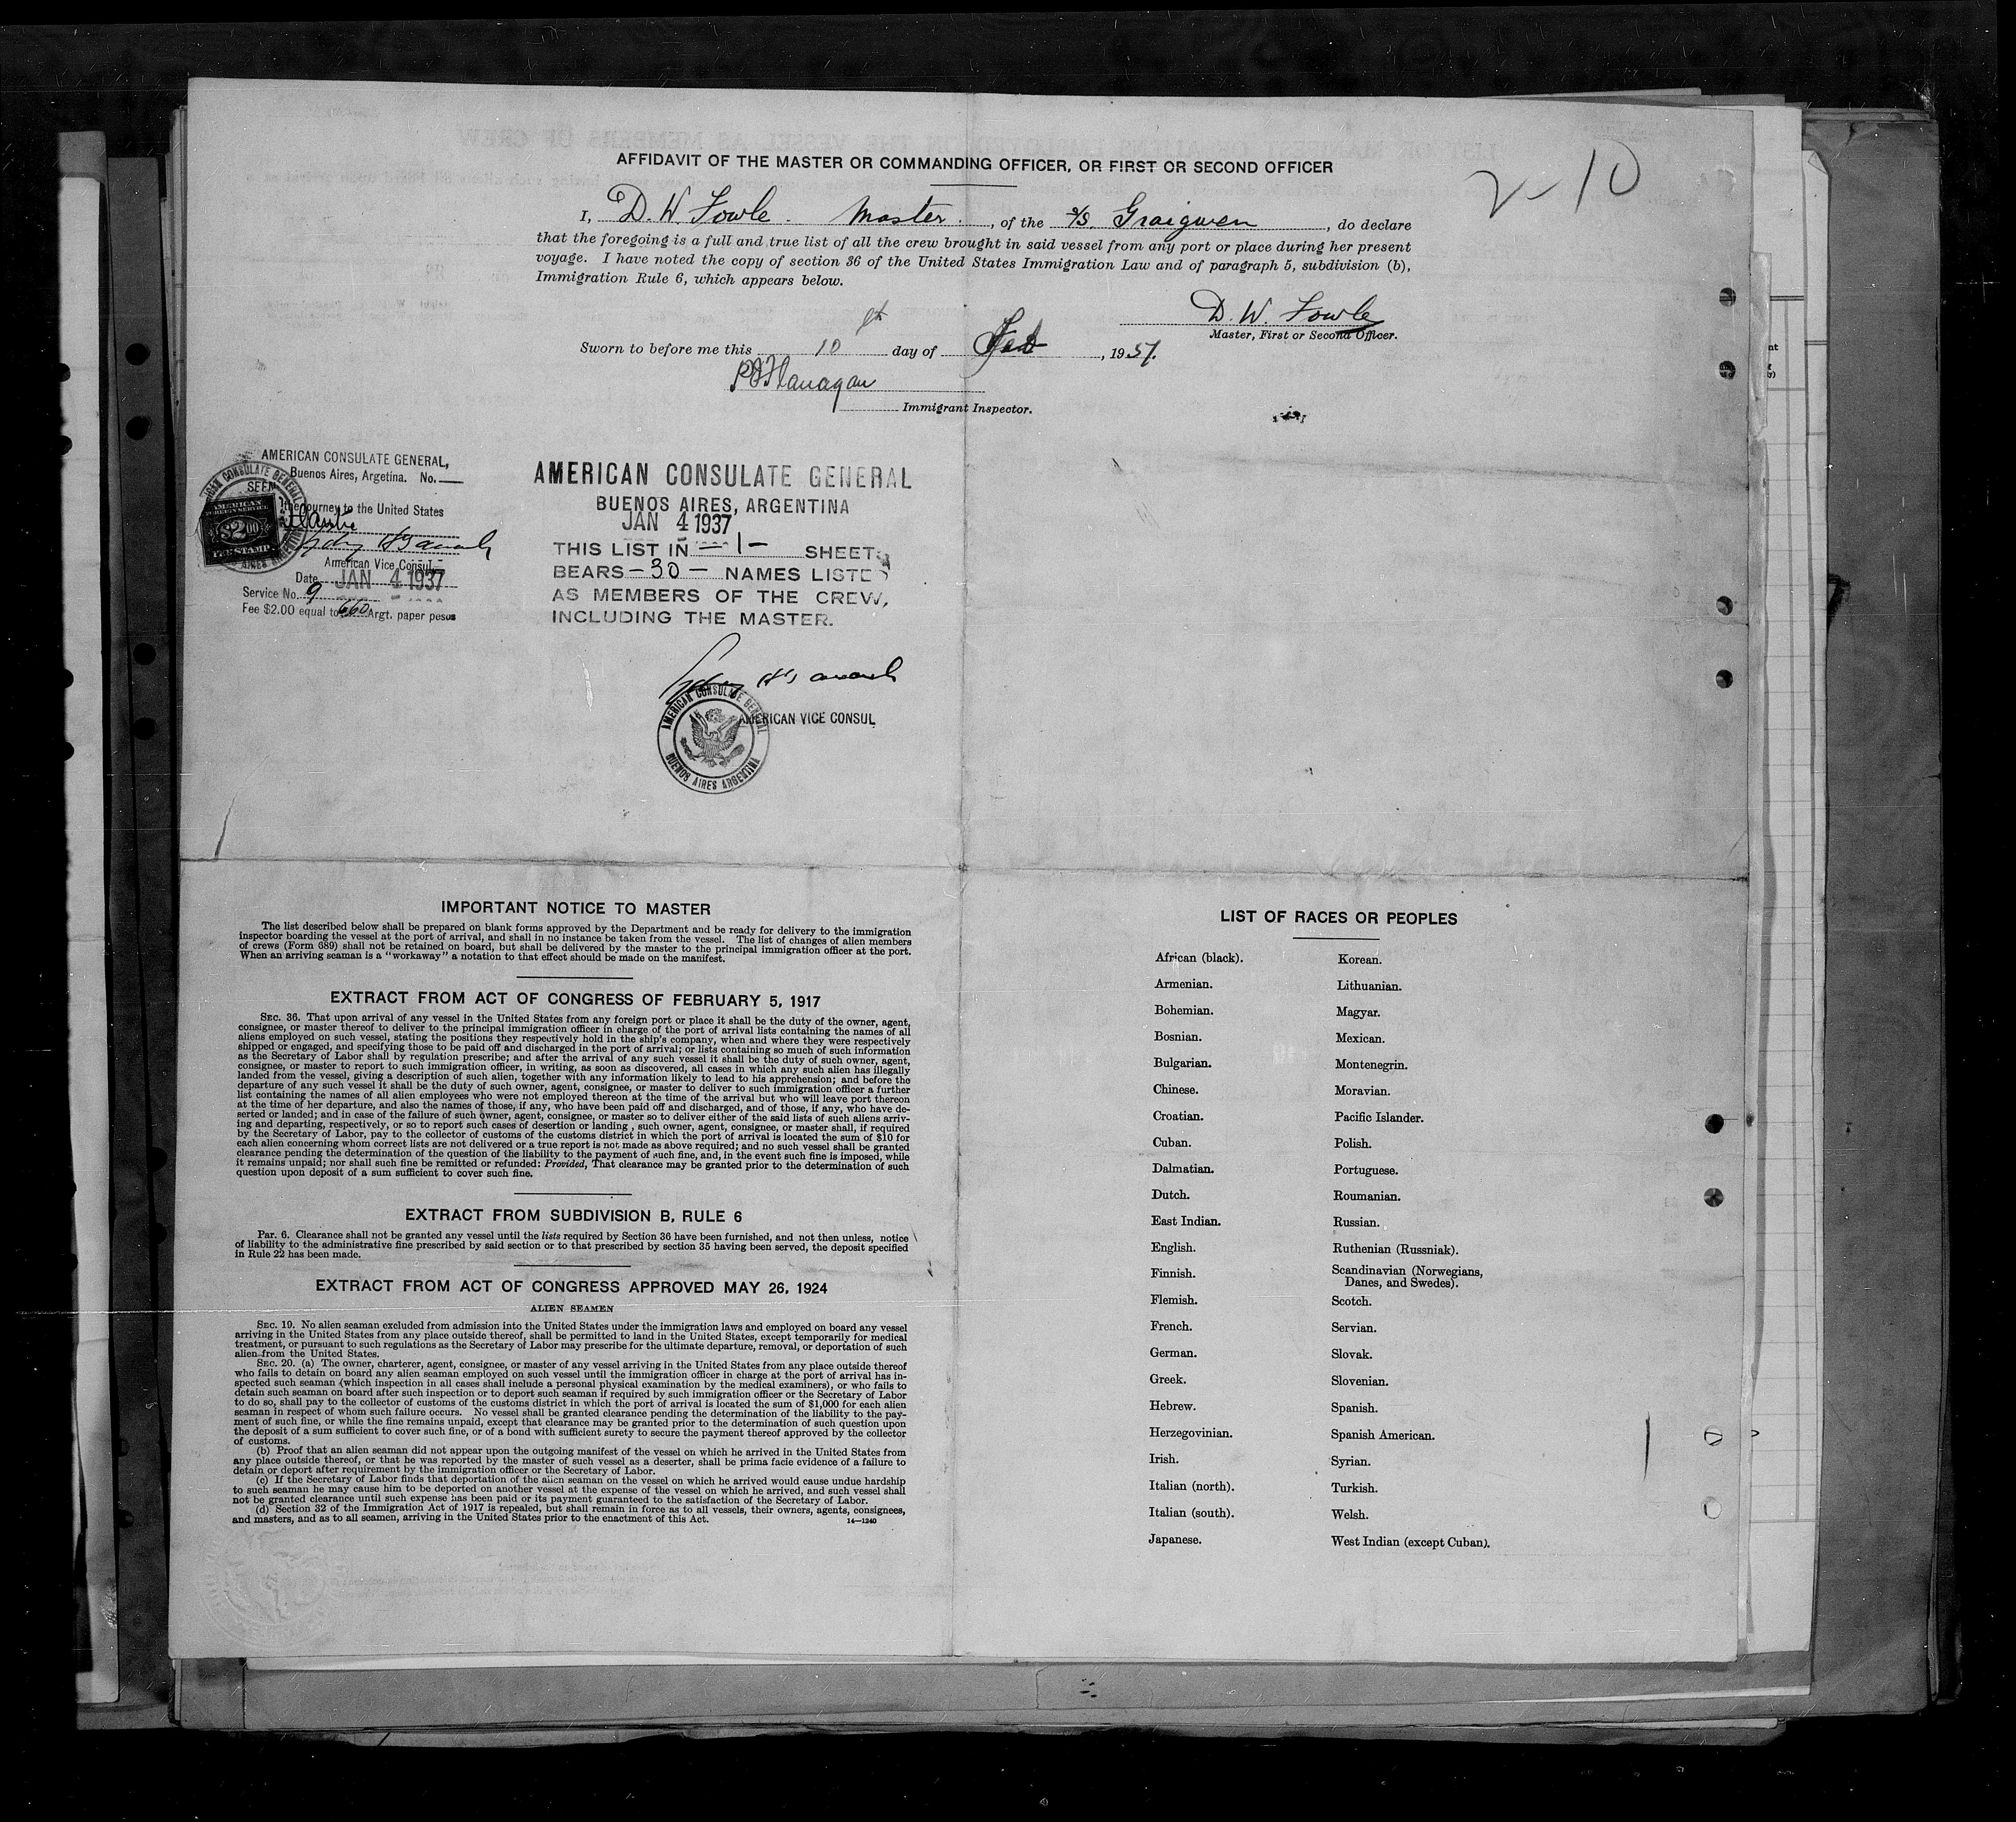 AFFIDAVIT OF THE MASTER OR COMMANDING OFFICER, OR FIRST OR SECOND OFFICER
2-10
I, D. W. Fowle. Master., of the S/S. Graigwen, do declare
that the foregoing is a full and true list of all the crew brought in said vessel from any port or place during her present
voyage. I have noted the copy of section 36 of the United States Immigration Law and of paragraph 5, subdivision (b),
Immigration Rule 6, which appears below.
D. W. Fowle
Master, First or Second Officer.
Sworn to before me this 10 day of Feb, 1937.
Flanagan
Immigrant Inspector.
AMERICAN CONSULATE GENERAL,
Buenos Aires, Argetina. No.
SEEN
the journey to the United States
American Vice Consul
Date JAN 4 1937
Service No. 9
Fee $2.00 equal to 660 Argt. paper pesos
AMERICAN
FOREIGN SERVICE
$2.00
FEE STAMP
AMERICAN CONSULATE GENERAL
BUENOS AIRES, ARGENTINA
JAN 4 1937
THIS LIST IN -1- SHEETS
BEARS -30- NAMES LISTED
AS MEMBERS OF THE CREW,
INCLUDING THE MASTER.
AMERICAN VICE CONSUL
AMERICAN CONSULATE GENERAL
BUENOS AIRES ARGENTINA
IMPORTANT NOTICE TO MASTER
The list described below shall be prepared on blank forms approved by the Department and be ready for delivery to the immigration
inspector boarding the vessel at the port of arrival, and shall in no instance be taken from the vessel. The list of changes of alien members
of crews (Form 689) shall not be retained on board, but shall be delivered by the master to the principal immigration officer at the port.
When an arriving seaman is a "workaway" a notation to that effect should be made on the manifest.
EXTRACT FROM ACT OF CONGRESS OF FEBRUARY 5, 1917
SEC. 36. That upon arrival of any vessel in the United States from any foreign port or place it shall be the duty of the owner, agent,
consignee, or master thereof to deliver to the principal immigration officer in charge of the port of arrival lists containing the names of all
aliens employed on such vessel, stating the positions they respectively hold in the ship's company, when and where they were respectively
shipped or engaged, and specifying those to be paid off and discharged in the port of arrival; or lists containing so much of such information
as the Secretary of Labor shall by regulation prescribe; and after the arrival of any such vessel it shall be the duty of such owner, agent,
consignee, or master to report to such immigration officer, in writing, as soon as discovered, all cases in which any such alien has illegally
landed from the vessel, giving a description of such alien, together with any information likely to lead to his apprehension; and before the
departure of any such vessel it shall be the duty of such owner, agent, consignee, or master to deliver to such immigration officer a further
list containing the names of all alien employees who were not employed thereon at the time of the arrival but who will leave port thereon
at the time of her departure, and also the names of those, if any, who have been paid off and discharged, and of those, if any, who have de-
serted or landed; and in case of the failure of such owner, agent, consignee, or master so to deliver either of the said lists of such aliens arriv-
ing and departing, respectively, or so to report such cases of desertion or landing , such owner, agent, consignee, or master shall, if required
by the Secretary of Labor, pay to the collector of customs of the customs district in which the port of arrival is located the sum of $10 for
each alien concerning whom correct lists are not delivered or a true report is not made as above required; and no such vessel shall be granted
clearance pending the determination of the question of the liability to the payment of such fine, and, in the event such fine is imposed, while
it remains unpaid; nor shall such fine be remitted or refunded: Provided, That clearance may be granted prior to the determination of such
question upon deposit of a sum sufficient to cover such fine.
EXTRACT FROM SUBDIVISION B, RULE 6
Par. 6. Clearance shall not be granted any vessel until the lists required by Section 36 have been furnished, and not then unless, notice
of liability to the administrative fine prescribed by said section or to that prescribed by section 35 having been served, the deposit specified
in Rule 22 has been made.
EXTRACT FROM ACT OF CONGRESS APPROVED MAY 26, 1924
ALIEN SEAMEN
SEC. 19. No alien seaman excluded from admission into the United States under the immigration laws and employed on board any vessel
arriving in the United States from any place outside thereof, shall be permitted to land in the United States, except temporarily for medical
treatment, or pursuant to such regulations as the Secretary of Labor may prescribe for the ultimate departure, removal, or deportation of such
alien from the United States.
SEC. 20. (a) The owner, charterer, agent, consignee, or master of any vessel arriving in the United States from any place outside thereof
who fails to detain on board any alien seaman employed on such vessel until the immigration officer in charge at the port of arrival has in-
spected such seaman (which inspection in all cases shall include a personal physical examination by the medical examiners), or who fails to
detain such seaman on board after such inspection or to deport such seaman if required by such immigration officer or the Secretary of Labor
to do so, shall pay to the collector of customs of the customs district in which the port of arrival is located the sum of $1,000 for each alien
seaman in respect of whom such failure occurs. No vessel shall be granted clearance pending the determination of the liability to the pay-
ment of such fine, or while the fine remains unpaid, except that clearance may be granted prior to the determination of such question upon
the deposit of a sum sufficient to cover such fine, or of a bond with sufficient surety to secure the payment thereof approved by the collector
of customs.
(b) Proof that an alien seaman did not appear upon the outgoing manifest of the vessel on which he arrived in the United States from
any place outside thereof, or that he was reported by the master of such vessel as a deserter, shall be prima facie evidence of a failure to
detain or deport after requirement by the immigration officer or the Secretary of Labor.
(c) If the Secretary of Labor finds that deportation of the alien seaman on the vessel on which he arrived would cause undue hardship
to such seaman he may cause him to be deported on another vessel at the expense of the vessel on which he arrived, and such vessel shall
not be granted clearance until such expense has been paid or its payment guaranteed to the satisfaction of the Secretary of Labor.
(d) Section 32 of the Immigration Act of 1917 is repealed, but shall remain in force as to all vessels, their owners, agents, consignees,
and masters, and as to all seamen, arriving in the United States prior to the enactment of this Act.
14—1240
LIST OF RACES OR PEOPLES
African (black).
Armenian.
Bohemian.
Bosnian.
Bulgarian.
Chinese.
Croatian.
Cuban.
Dalmatian.
Dutch.
East Indian.
English.
Finnish.
Flemish.
French.
German.
Greek.
Hebrew.
Herzegovinian.
Irish.
Italian (north).
Italian (south).
Japanese.
Korean.
Lithuanian.
Magyar.
Mexican.
Montenegrin.
Moravian.
Pacific Islander.
Polish.
Portuguese.
Roumanian.
Russian.
Ruthenian (Russniak).
Scandinavian (Norwegians,
Danes, and Swedes).
Scotch.
Servian.
Slovak.
Slovenian.
Spanish.
Spanish American.
Syrian.
Turkish.
Welsh.
West Indian (except Cuban).